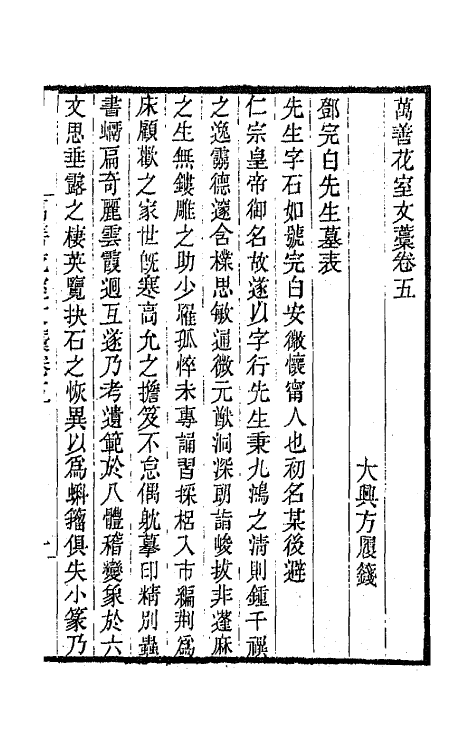 萬善花室文藁卷五
大興方履籛
鄧完白先生墓表
先生字石如號完白安徽懷甯人也初名某後避
仁宗皇帝御名故遂以字行先生秉九鴻之清則鍾千禩
之逸靄德邃含樸思敏通微元猷洞深朗詣峻拔非蓬麻
之生無鏤雕之助少罹孤悴未專誦習採梠入市編荆為
床顧歡之家世旣寒高允之擔笈不怠偶躭摹印精別蟲
書蠣扁奇麗雲霞迴互遂乃考遺範於八體稽變象於六
文思垂露之棲英覽抉石之恢異以爲蝌籀俱失小篆乃